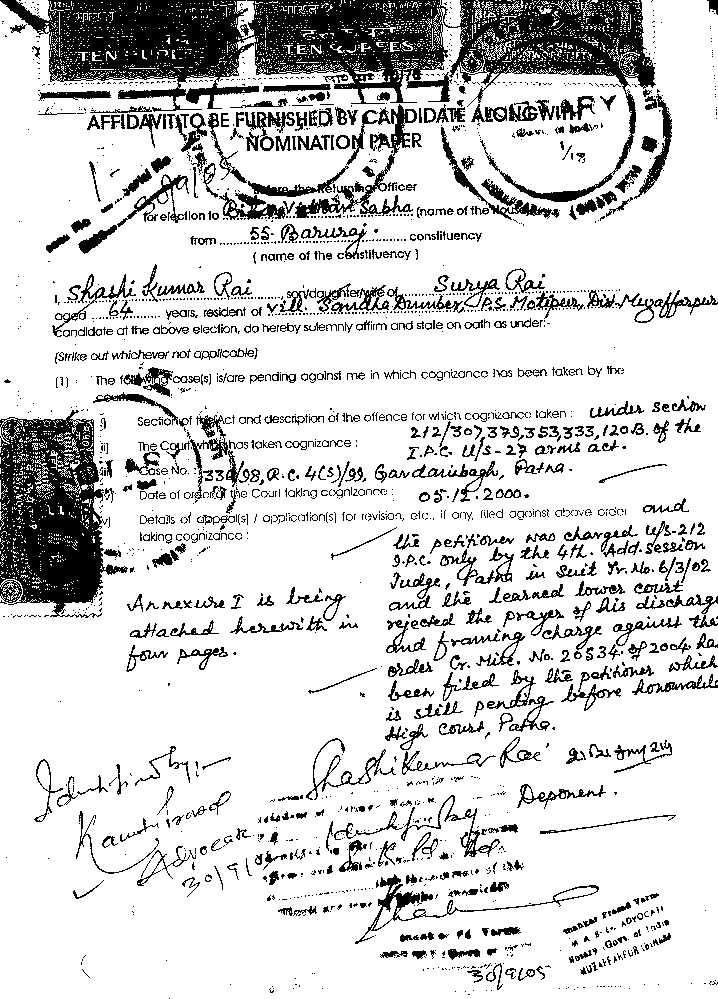 TEN RUPEES
TEN RUPEES
NOTARY
1/18
AFFIDAVIT TO BE FURNISHED BY CANDIDATE ALONGWITH
NOMINATION PAPER
30/9/05
Before the Returning Officer
for election to Bihar Vidhan Sabha (name of the House)
from 55-Baruraj. constituency
( name of the constituency )
I, Shashi Kumar Rai son/daughter/wife of Surya Rai
aged 64 years, resident of Vill. P.S. Motipur, Dist-Muzaffarpur
Candidate at the above election, do hereby solemnly affirm and state on oath as under:-
(Strike out whichever not applicable)
(1) The following case(s) is/are pending against me in which cognizance has been taken by the
court:-
i) Section of the Act and description of the offence for which cognizance taken : under section
212/307,379,353,333,120B. of the
ii) The Court which has taken cognizance : I.P.C. U/S-27 arms act.
iii) Case No. : 330/98, R.C. 4(S)/99, Gardanibagh, Patna.
iv) Date of order of the Court taking cognizance : 05.12.2000.
v) Details of appeal(s) / application(s) for revision, etc., if any, filed against above order and
taking cognizance :
the petitioner was charged U/S-212
I.P.C. only by the 4th. Add. session
Judge, Patna in Suit Tr. No. 6/3/02
and the learned lower court
rejected the prayer of his discharge
and framing charge against the
order Cr. Misc. No. 20534 of 2004 ha
been filed by the petitioner which
is still pending before honourable
High Court, Patna.
Annexure I is being
attached herewith in
four pages.
Shashi Kumar Rai
Deponent.
Identified by:-
Advocate
30/9/05
Identified by
30/9/05
Shankar Prasad Varma
ADVOCATE
Notary, Govt. of India
MUZAFFARPUR (BIHAR)